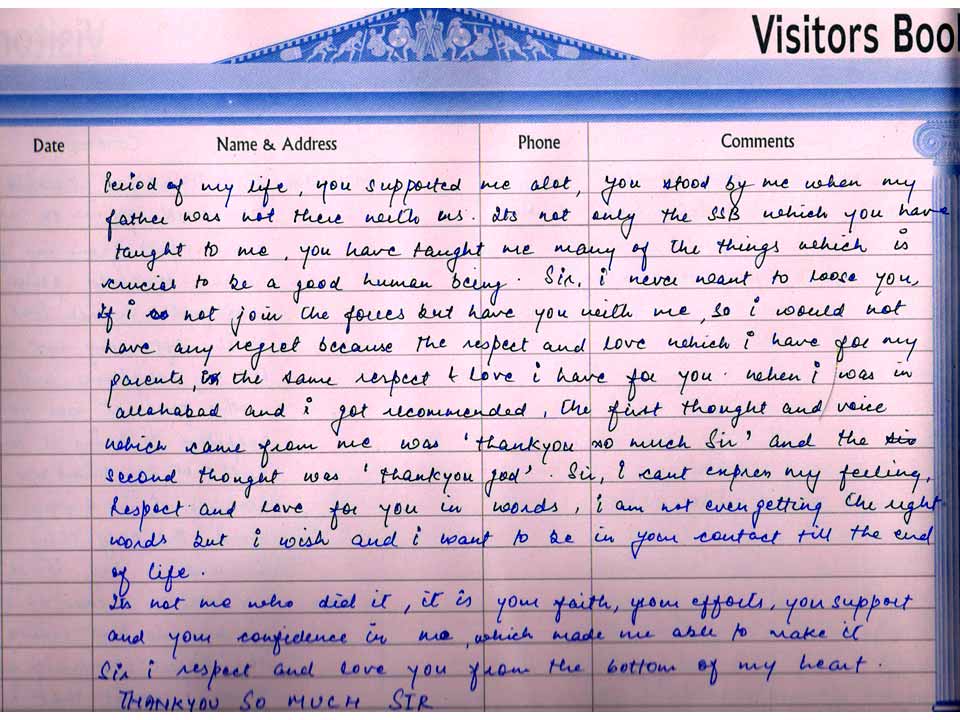 Visitors Boo
Date Name & Address Phone Comments
Period of my life, you supported me alot, you stood by me when my
father was not there with us. Its not only the SSB which you have
taught to me, you have taught me many of the things which is
crucial to be a good human being. Sir, i never want to loose you,
If i not join the forces but have you with me, so i would not
have any regret because the respect and love which i have for my
parents, the same respect & love i have for you. when i was in
allahabad and i got recommended, the first thought and voice
which came from me was 'thankyou so much Sir' and the
second thought was 'thankyou god'. Sir, I cant express my feeling,
Respect and love for you in words, i am not even getting the right
words but i wish and i want to be in your contact till the end
of life.
Its not me who did it, it is your faith, your efforts, you support
and your confidence in me, which made me able to make it
Sir i respect and love you from the bottom of my heart.
THANKYOU SO MUCH SIR